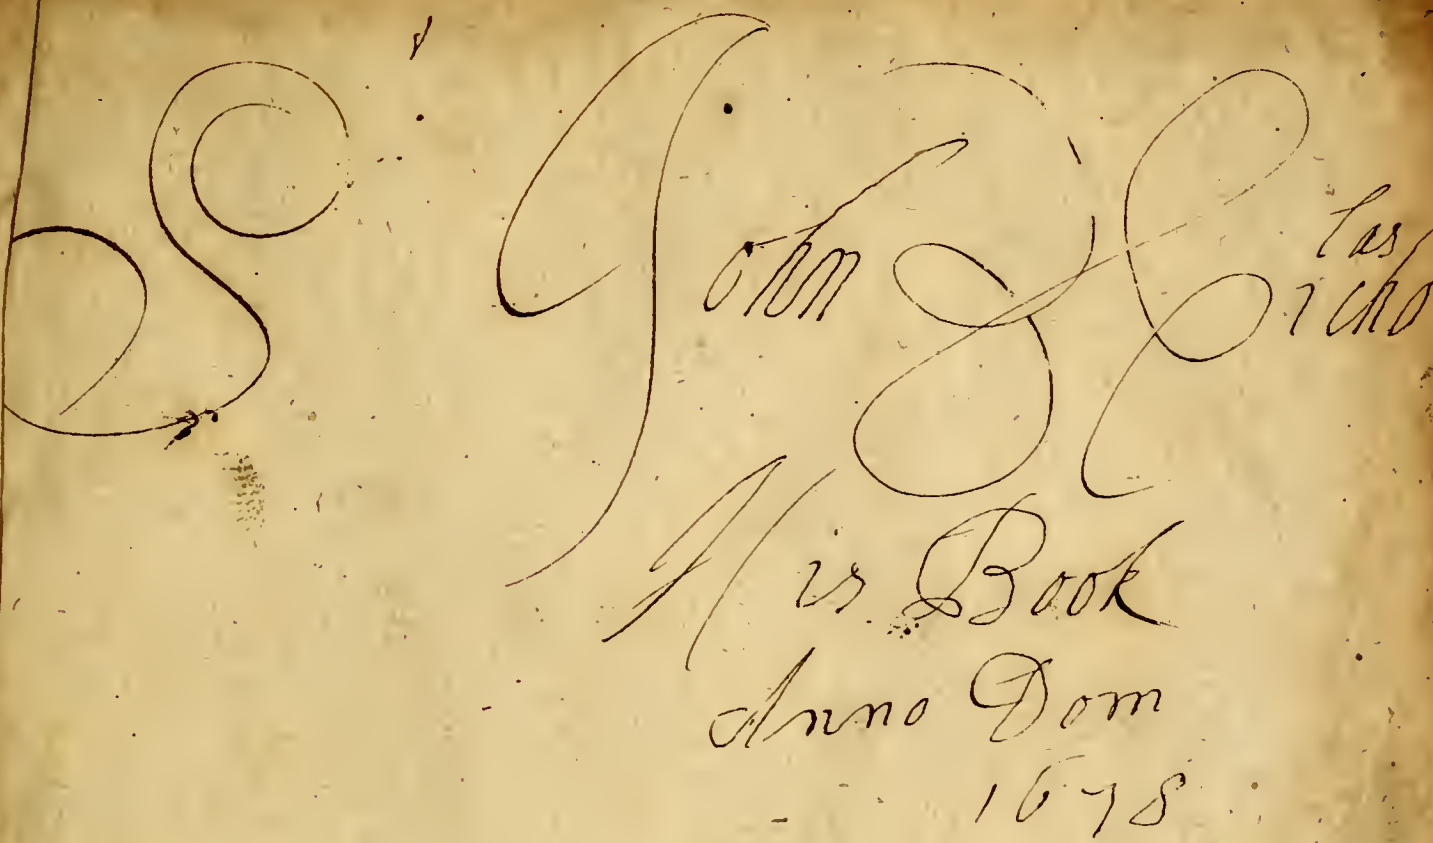 John Nicholas
His Book
Anno Dom
1678